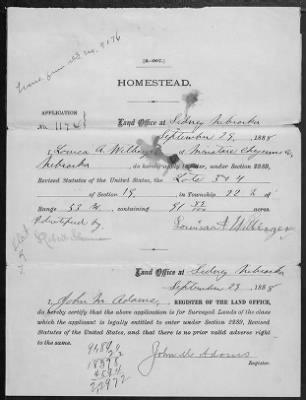 [4-007.]
HOMESTEAD.
APPLICATION
No.
Land Office at Sidney Nebraska
September 29, 1888
I, Louisa A. of Minatare Cheyenne Co
Nebraska, do hereby apply to enter, under Section 2289,
Revised Statutes of the United States, the Lots 3 & 4
of Section 19, in Township 22 N of
Range 53 W, containing 91 acres.
Louisa A
Land Office at Sidney Nebraska
September 29, 1888
I, John M. Adams, REGISTER OF THE LAND OFFICE,
do hereby certify that the above application is for Surveyed Lands of the class
which the applicant is legally entitled to enter under Section 2289, Revised
Statutes of the United States, and that there is no prior valid adverse right
to the same.
John M. Adams
Register.